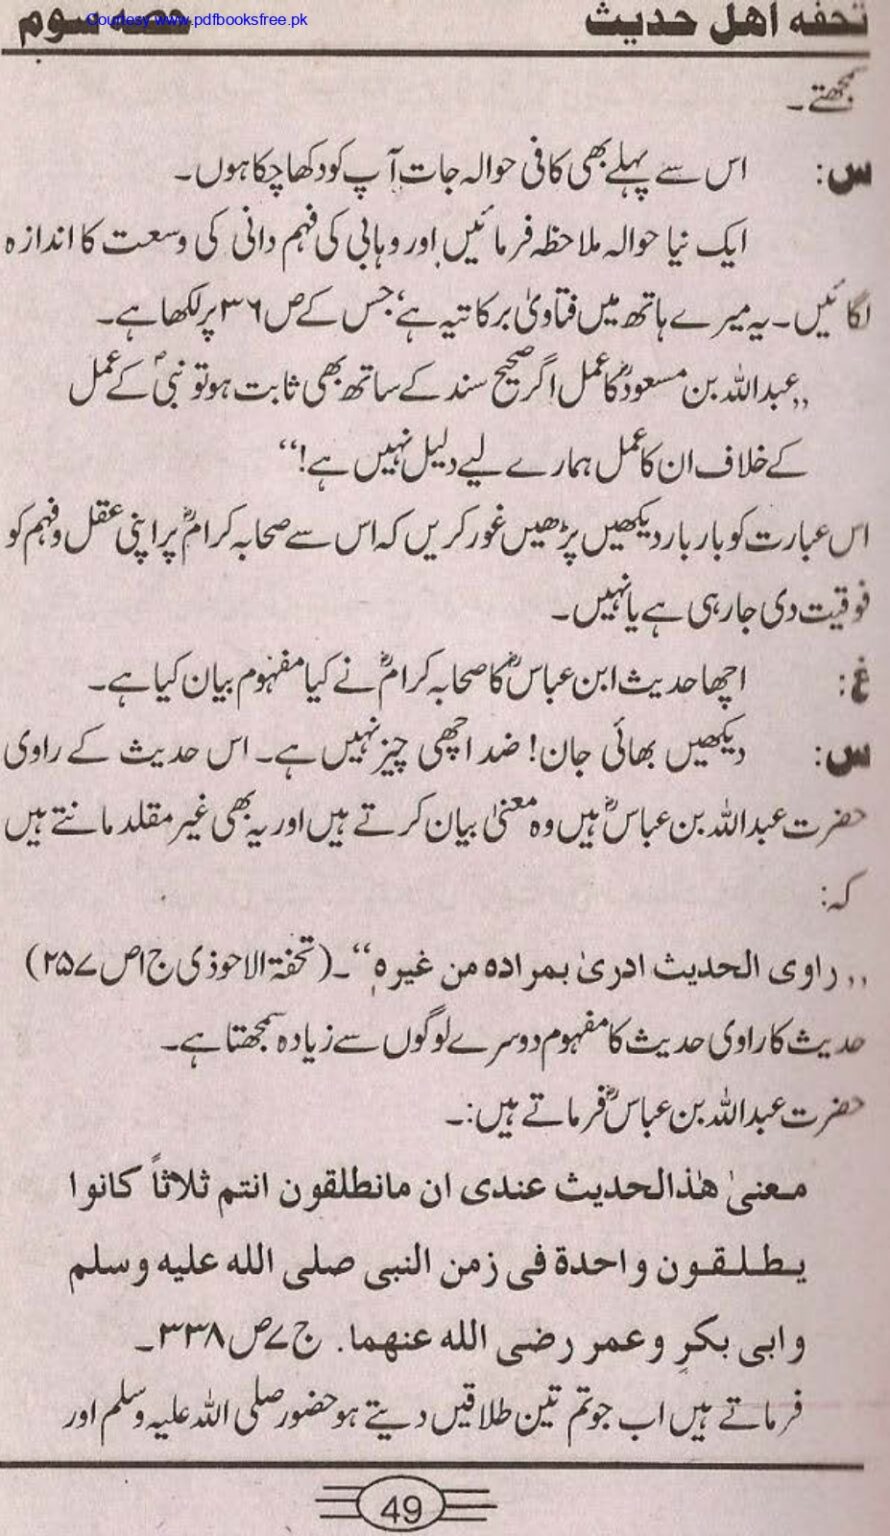 تحفہ اهل حدیث
حصہ سوم
Courtesy www.pdfbooksfree.pk
سمجھتے۔
س: اس سے پہلے بھی کافی حوالہ جات آپ کو دکھا چکا ہوں۔
ایک نیا حوالہ ملاحظہ فرمائیں اور وہابی کی فہم دانی کی وسعت کا اندازہ
لگائیں۔ یہ میرے ہاتھ میں فتاویٰ برکاتیہ ہے، جس کے ص۳۶ پر لکھا ہے۔
,,عبداللہ بن مسعودؓ کا عمل اگر صحیح سند کے ساتھ بھی ثابت ہو تو نبیؐ کے عمل
کے خلاف ان کا عمل ہمارے لیے دلیل نہیں ہے!‘‘
اس عبارت کو بار بار دیکھیں پڑھیں غور کریں کہ اس سے صحابہ کرامؓ پر اپنی عقل و فہم کو
فوقیت دی جا رہی ہے یا نہیں۔
غ: اچھا حدیث ابن عباسؓ کا صحابہ کرامؓ نے کیا مفہوم بیان کیا ہے۔
س: دیکھیں بھائی جان! ضد اچھی چیز نہیں ہے۔ اس حدیث کے راوی
حضرت عبداللہ بن عباسؓ ہیں وہ معنیٰ بیان کرتے ہیں اور یہ بھی غیر مقلد مانتے ہیں
کہ:
,,راوی الحدیث ادریٰ بمراده من غیره‘‘۔ (تحفۃ الاحوذی ج۱ص۲۵۷)
حدیث کا راوی حدیث کا مفہوم دوسرے لوگوں سے زیادہ سمجھتا ہے۔
حضرت عبداللہ بن عباسؓ فرماتے ہیں:۔
معنیٰ هٰذالحدیث عندی ان ماتطلقون انتم ثلاثاً کانوا
یطلقون واحدة فی زمن النبی صلی الله علیه وسلم
وابی بکرٍ وعمر رضی الله عنهما. ج۷ص۳۳۸۔
فرماتے ہیں اب جو تم تین طلاقیں دیتے ہو حضور صلی اللہ علیہ وسلم اور
49